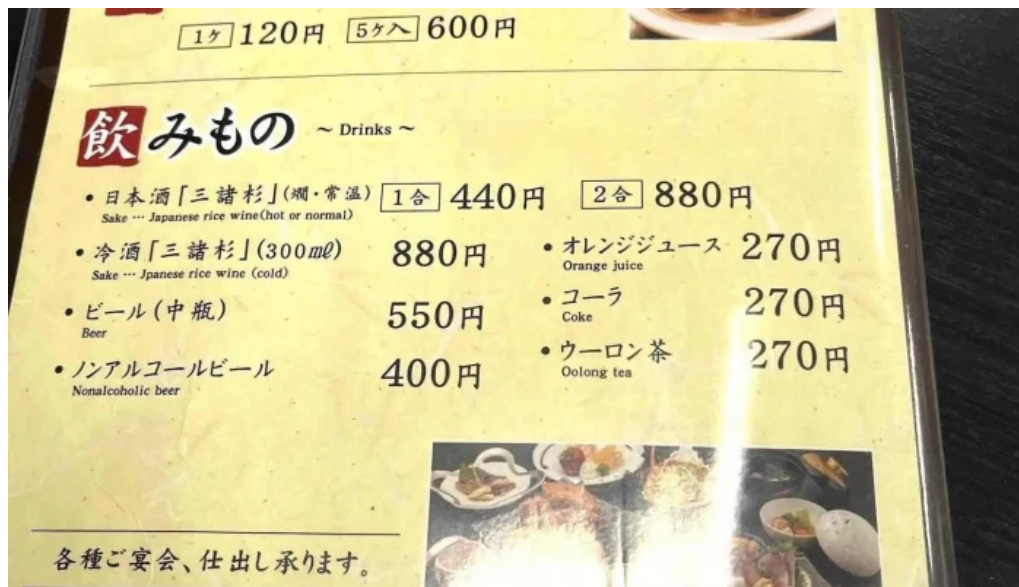 1ケ 120円 5ケ入 600円
飲みもの ～ Drinks ～
• 日本酒「三諸杉」(燗・常温) 1合 440円 2合 880円
Sake … Japanese rice wine(hot or normal)
• 冷酒「三諸杉」(300㎖) 880円
Sake … Jpanese rice wine (cold)
• ビール(中瓶) 550円
Beer
• ノンアルコールビール 400円
Nonalcoholic beer
• オレンジジュース 270円
Orange juice
• コーラ 270円
Coke
• ウーロン茶 270円
Oolong tea
各種ご宴会、仕出し承ります。